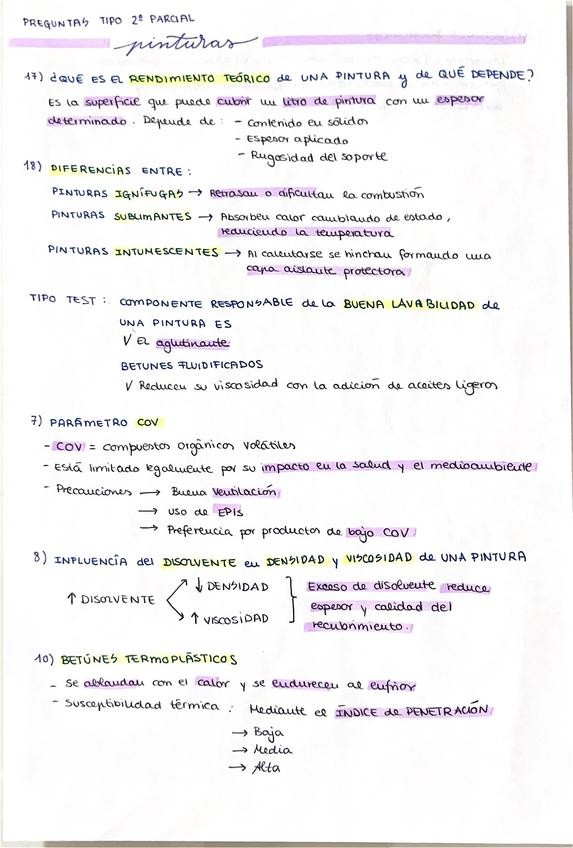 PREGUNTAS TIPO 2º PARCIAL
pinturas
17) ¿QUÉ ES EL RENDIMIENTO TEÓRICO de UNA PINTURA y de QUÉ DEPENDE?
Es la superficie que puede cubrir un litro de pintura con un espesor
determinado. Depende de: - Contenido en sólidos
- Espesor aplicado
- Rugosidad del soporte
18) DIFERENCIAS ENTRE:
PINTURAS IGNÍFUGAS → Retrasan o dificultan la combustión
PINTURAS SUBLIMANTES → Absorben calor cambiando de estado,
reduciendo la temperatura
PINTURAS INTUMESCENTES → Al calentarse se hinchan formando una
capa aislante protectora
TIPO TEST: COMPONENTE RESPONSABLE de la BUENA LAVABILIDAD de
UNA PINTURA ES
√ EL aglutinante
BETUNES FLUIDIFICADOS
√ Reducen su viscosidad con la adición de aceites ligeros
7) PARÁMETRO COV
- COV = compuestos orgánicos volátiles
- Está limitado legalmente por su impacto en la salud y el medioambiente
- Precauciones → Buena ventilación
→ uso de EPIs
→ Preferencia por productos de bajo COV
8) INFLUENCÍA del DISOLVENTE en DENSIDAD y VISCOSIDAD de UNA PINTURA
↑ DISOLVENTE ↓ DENSIDAD
↑ VISCOSIDAD
Exceso de disolvente reduce
espesor y calidad del
recubrimiento.
10) BETÚNES TERMOPLÁSTICOS
- Se ablandan con el calor y se endurecen al enfriar
- Susceptibilidad térmica: Mediante el ÍNDICE de PENETRACIÓN
→ Baja
→ Media
→ Alta